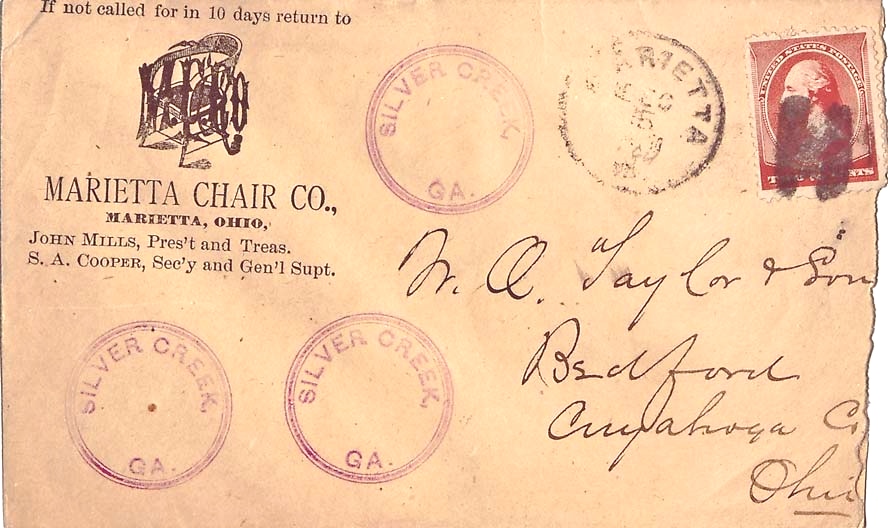 If not called for in 10 days return to
M.C.Co
MARIETTA CHAIR CO.,
MARIETTA, OHIO,
JOHN MILLS, Pres't and Treas.
S. A. COOPER, Sec'y and Gen'l Supt.
SILVER CREEK,
GA.
MARIETTA
UNITED STATES POSTAGE
TWO CENTS
W. A. Taylor & Son
Bedford
Cuyahoga Co
Ohio
SILVER CREEK,
GA.
SILVER CREEK,
GA.